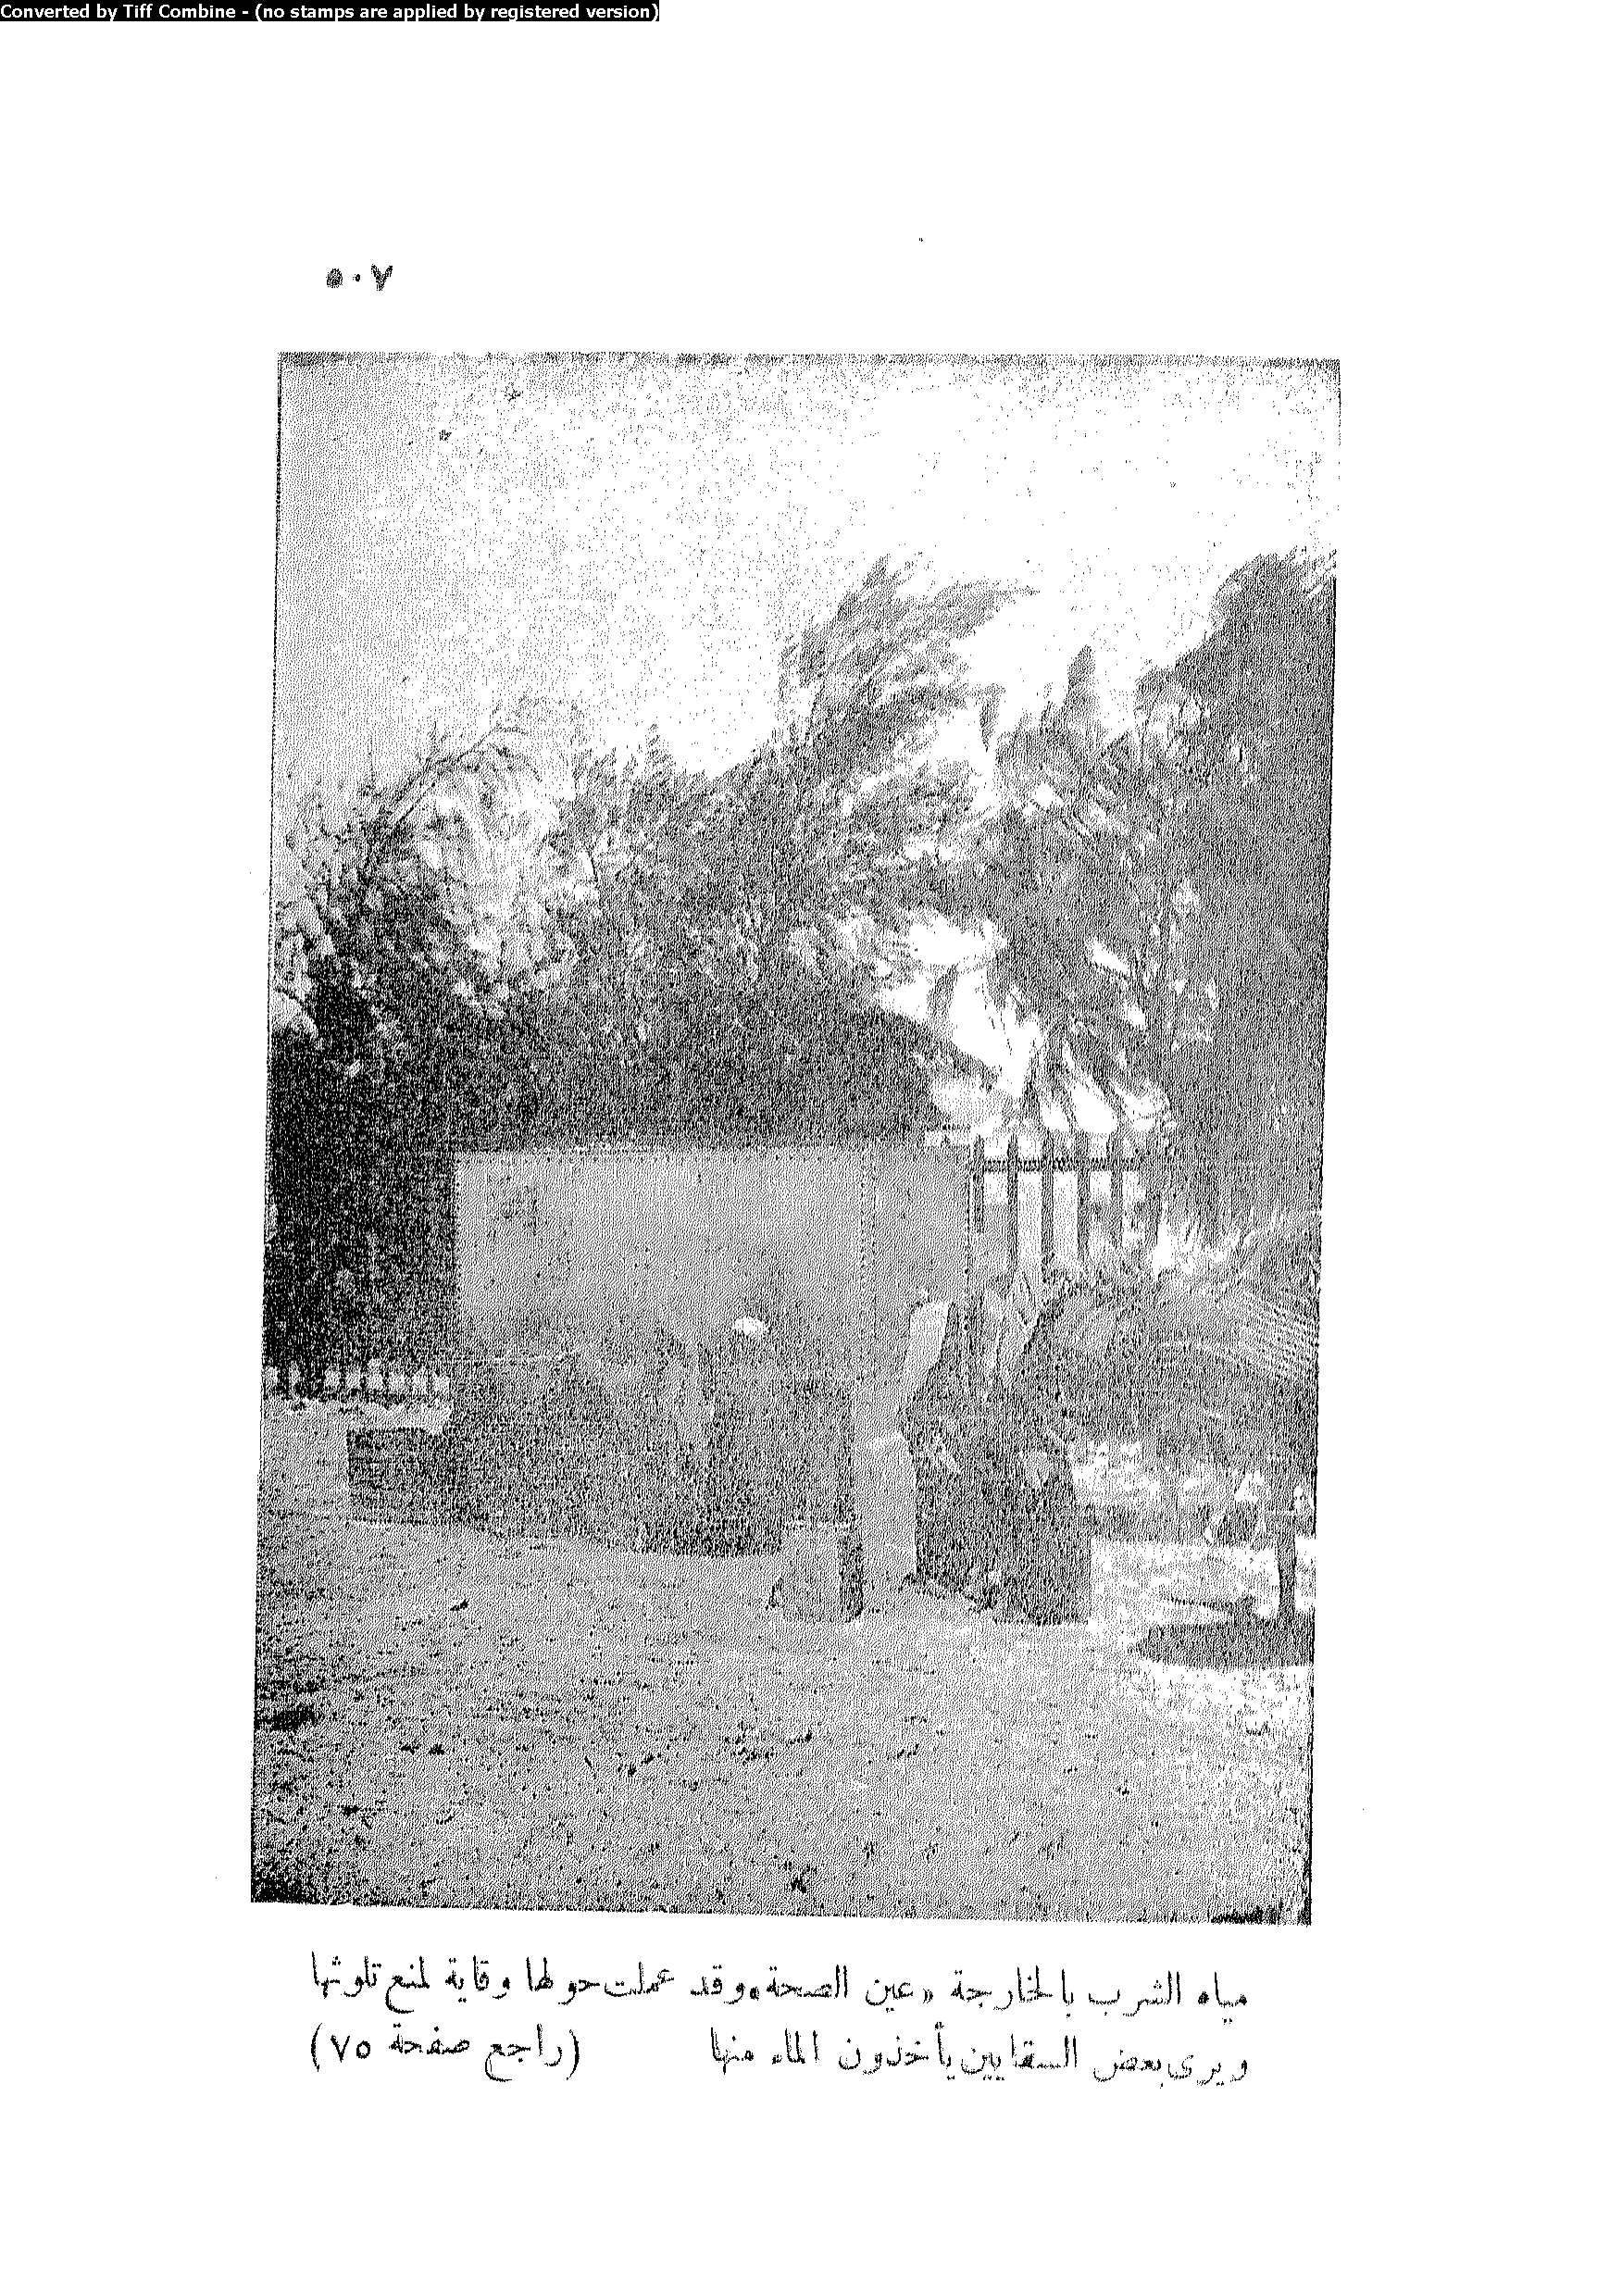 Converted by Tiff Combine - (no stamps are applied by registered version)
٥٠٧
مياه الشرب بالخارجة «عين الصحة» وقد عملت حولها وقاية لمنع تلوثها
ويرى بعض السقايين يأخذون الماء منها (راجع صفحة ٧٥)